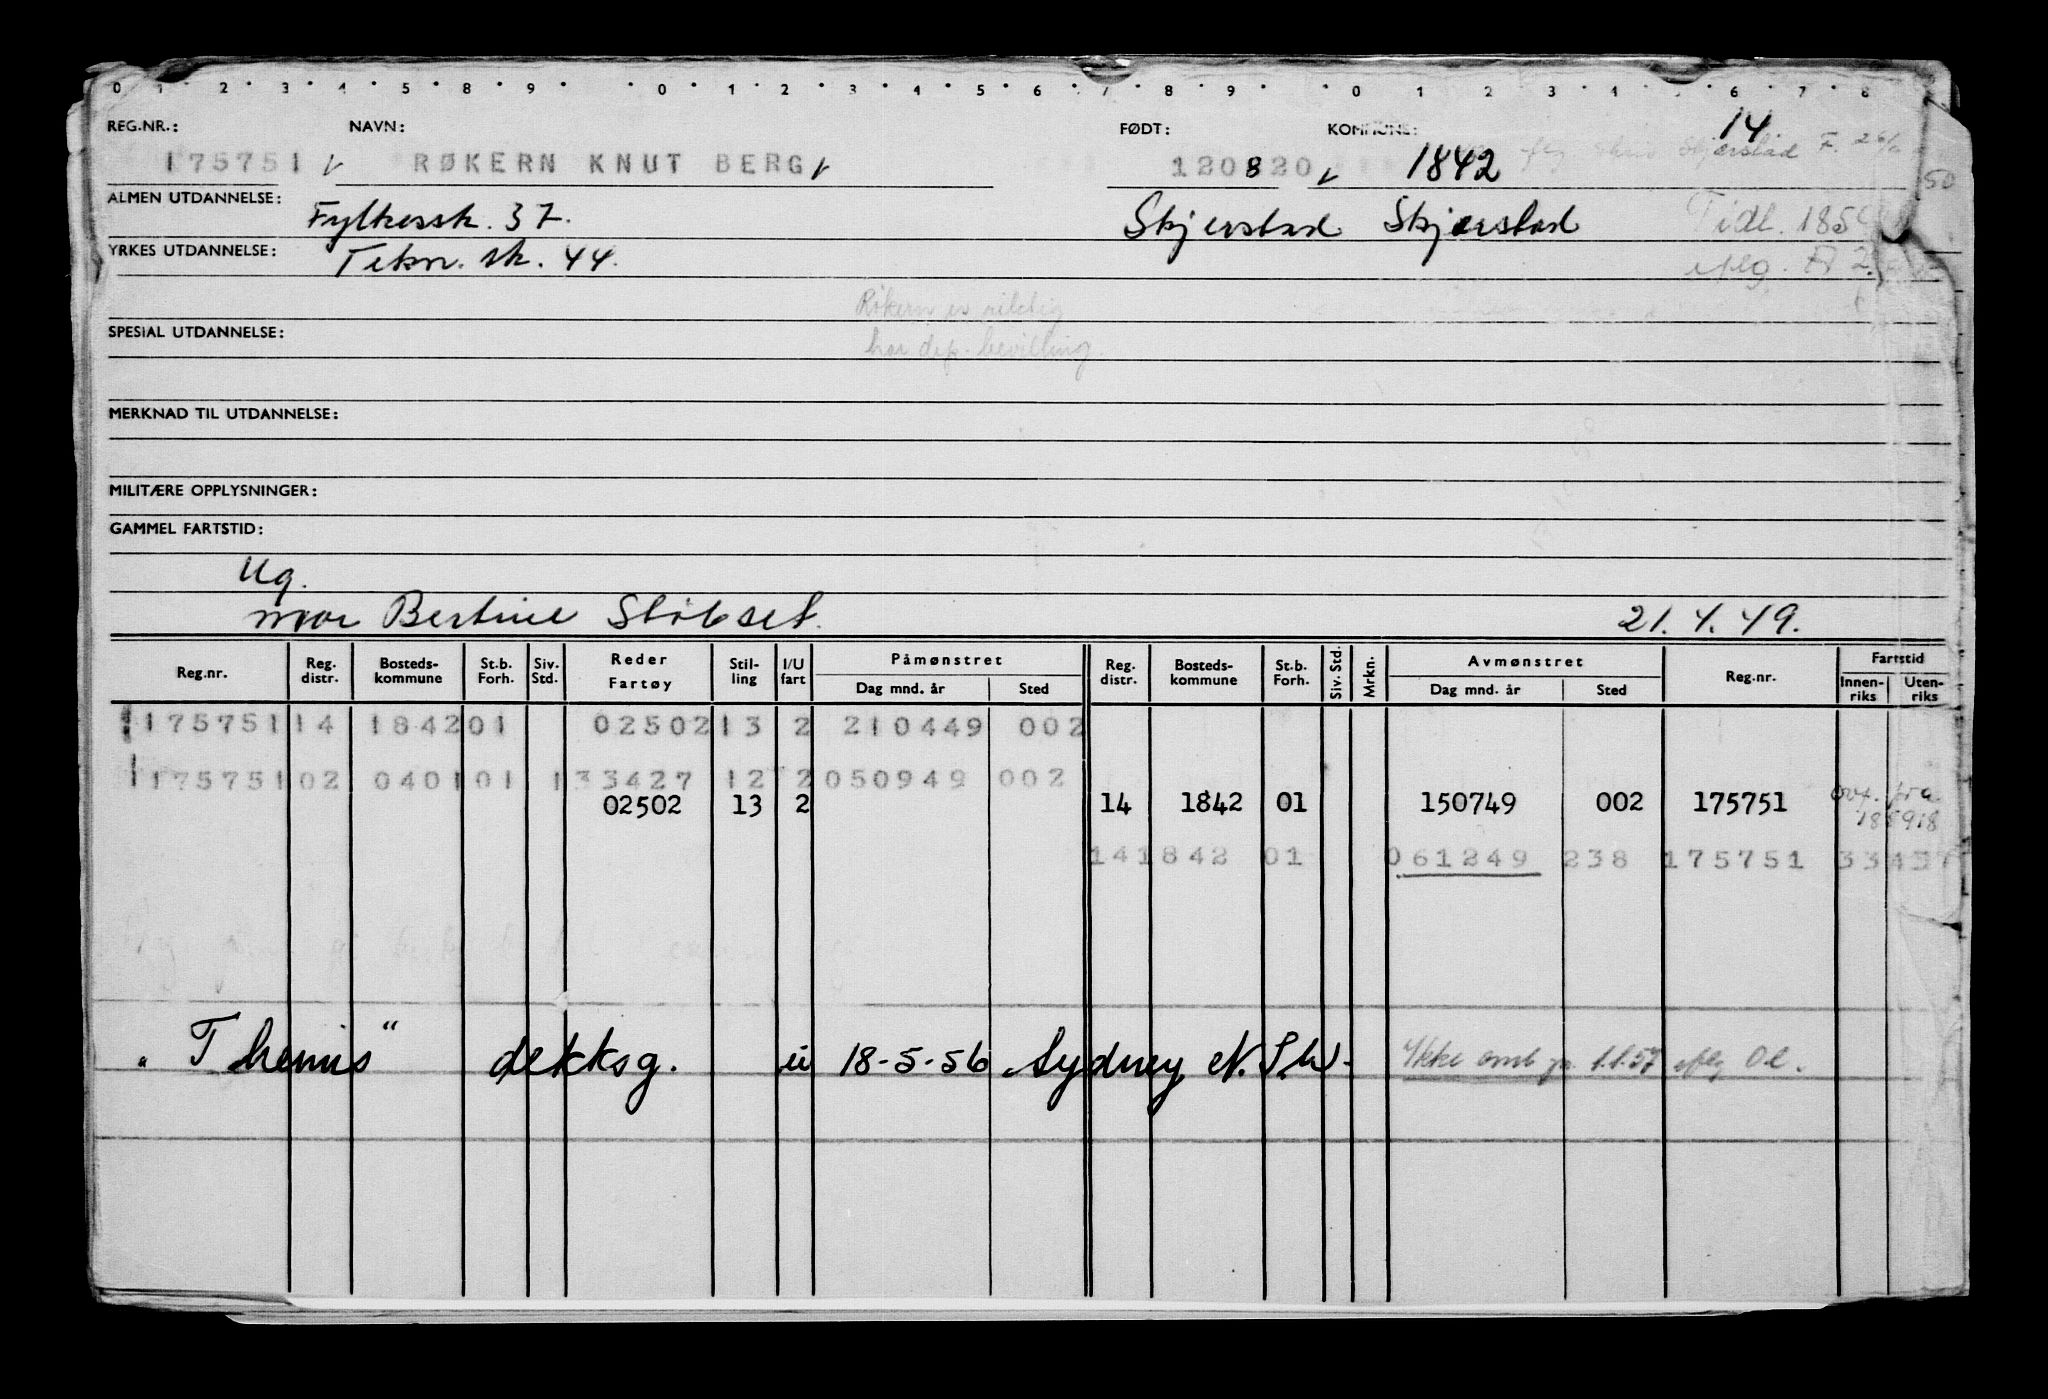 0 1 2 3 4 5 8 9 0 1 2 3 4 5 6 7 8 9 0 1 2 3 4 5 6 7 8
14
REG.NR.: NAVN: FØDT: KOMMUNE:
175751 RØKERN KNUT BERG 120820 1842 Skjerstad F.
50
ALMEN UTDANNELSE: Fylkessk. 37. Skjerstad Skjerstad Tidl.
YRKES UTDANNELSE: Tekn. sk. 44. iflg.
Røkern er riktig
SPESIAL UTDANNELSE: har dep. bevilling.
MERKNAD TIL UTDANNELSE:
MILITÆRE OPPLYSNINGER:
GAMMEL FARTSTID:
Ug.
mor Bertine Støbset. 21.4.49.
Reg.nr. Reg. distr. Bosteds-kommune St.b. Forh. Siv. Std. Reder Fartøy Stil-ling I/U fart Påmønstret Dag mnd. år Sted Reg. distr. Bosteds-kommune St.b. Forh. Siv. Std. Mrkn. Avmønstret Dag mnd. år Sted Reg.nr. Fartstid Innen-riks Uten-riks
175751 14 1842 01 02502 13 2 210449 002
175751 02 0401 01 133427 12 2 050949 002
02502 13 2 14 1842 01 150749 002 175751 fra
14 1842 01 061249 238 175751
"Themis" dekksg. u 18-5-56 Sydney N.S.W. Ikke omb pr. 1.1.57 iflg O.l.